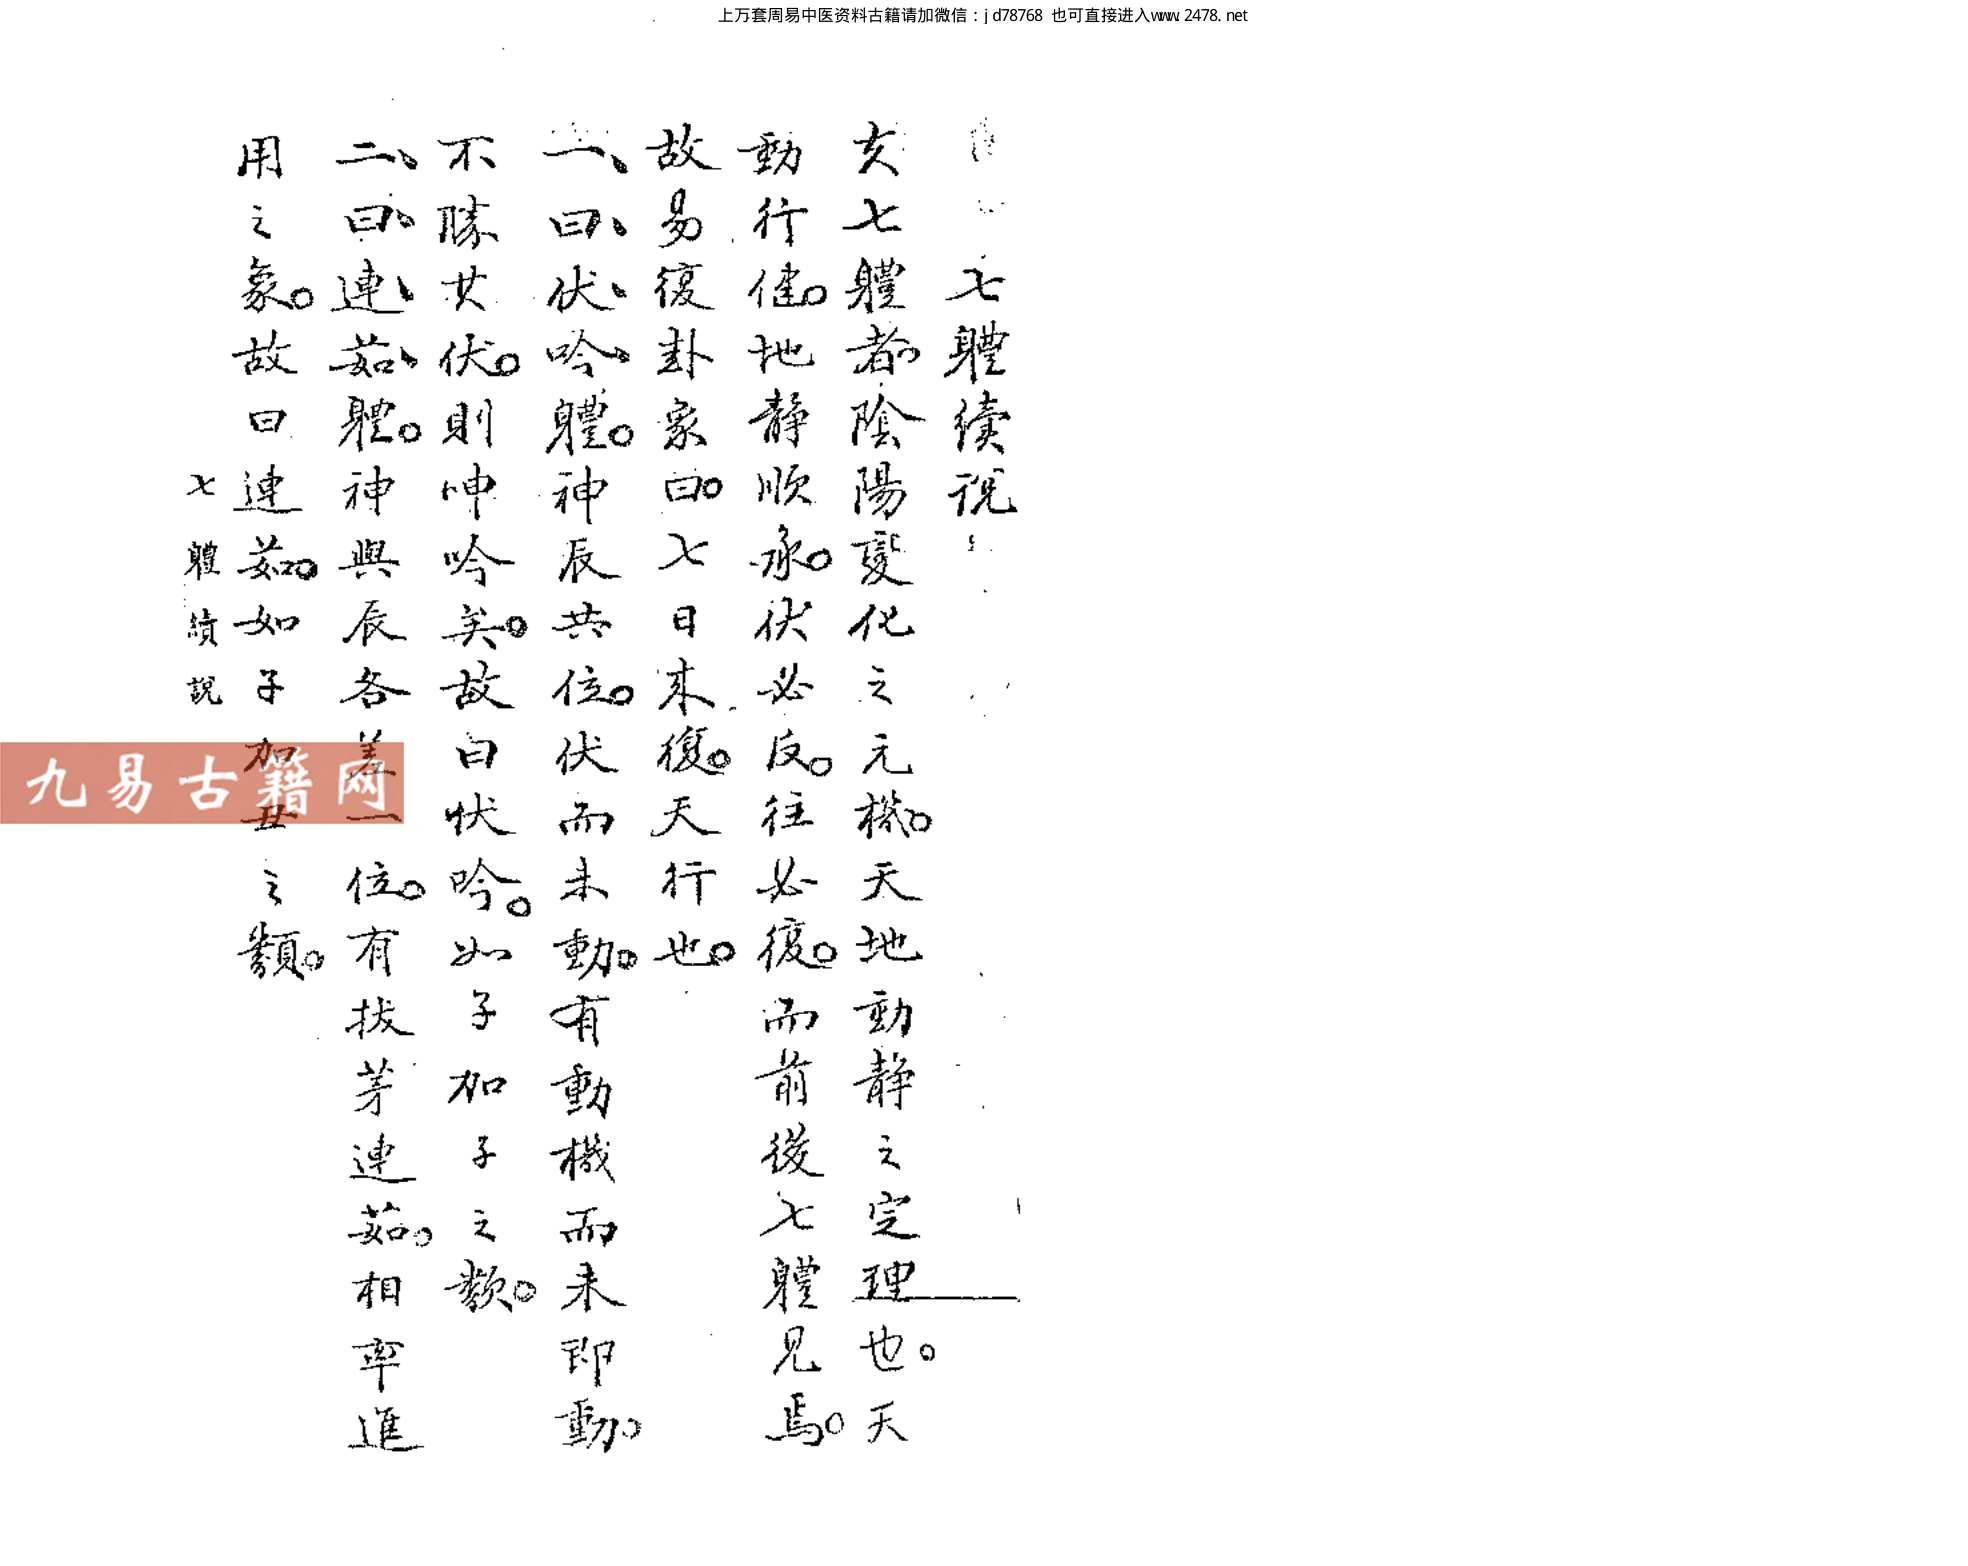 上万套周易中医资料古籍请加微信：jd78768 也可直接进入www.2478.net
七體續説
亥七體者陰陽變化之元機。天地動静之定理也。天
動行健。地静順承。伏必反。往必復。而前後七體見焉。
故易復卦象曰。七日来復。天行也。
一、曰、伏、吟、體。神辰共位。伏而未動。有動機而未即動。
不勝其伏。則呻吟矣。故曰伏吟。如子加子之類。
二、曰、連、茹、體。神與辰各差一位。有拔茅連茹。相率進
用之象。故曰連茹。如子加丑之類。
七體續説
九易古籍网